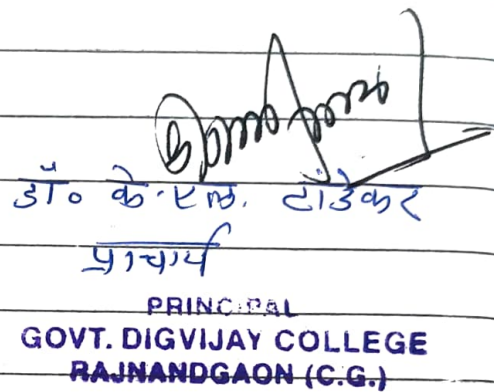 डॉ० के.एल. टांडेकर
प्राचार्य
PRINCIPAL
GOVT. DIGVIJAY COLLEGE
RAJNANDGAON (C.G.)